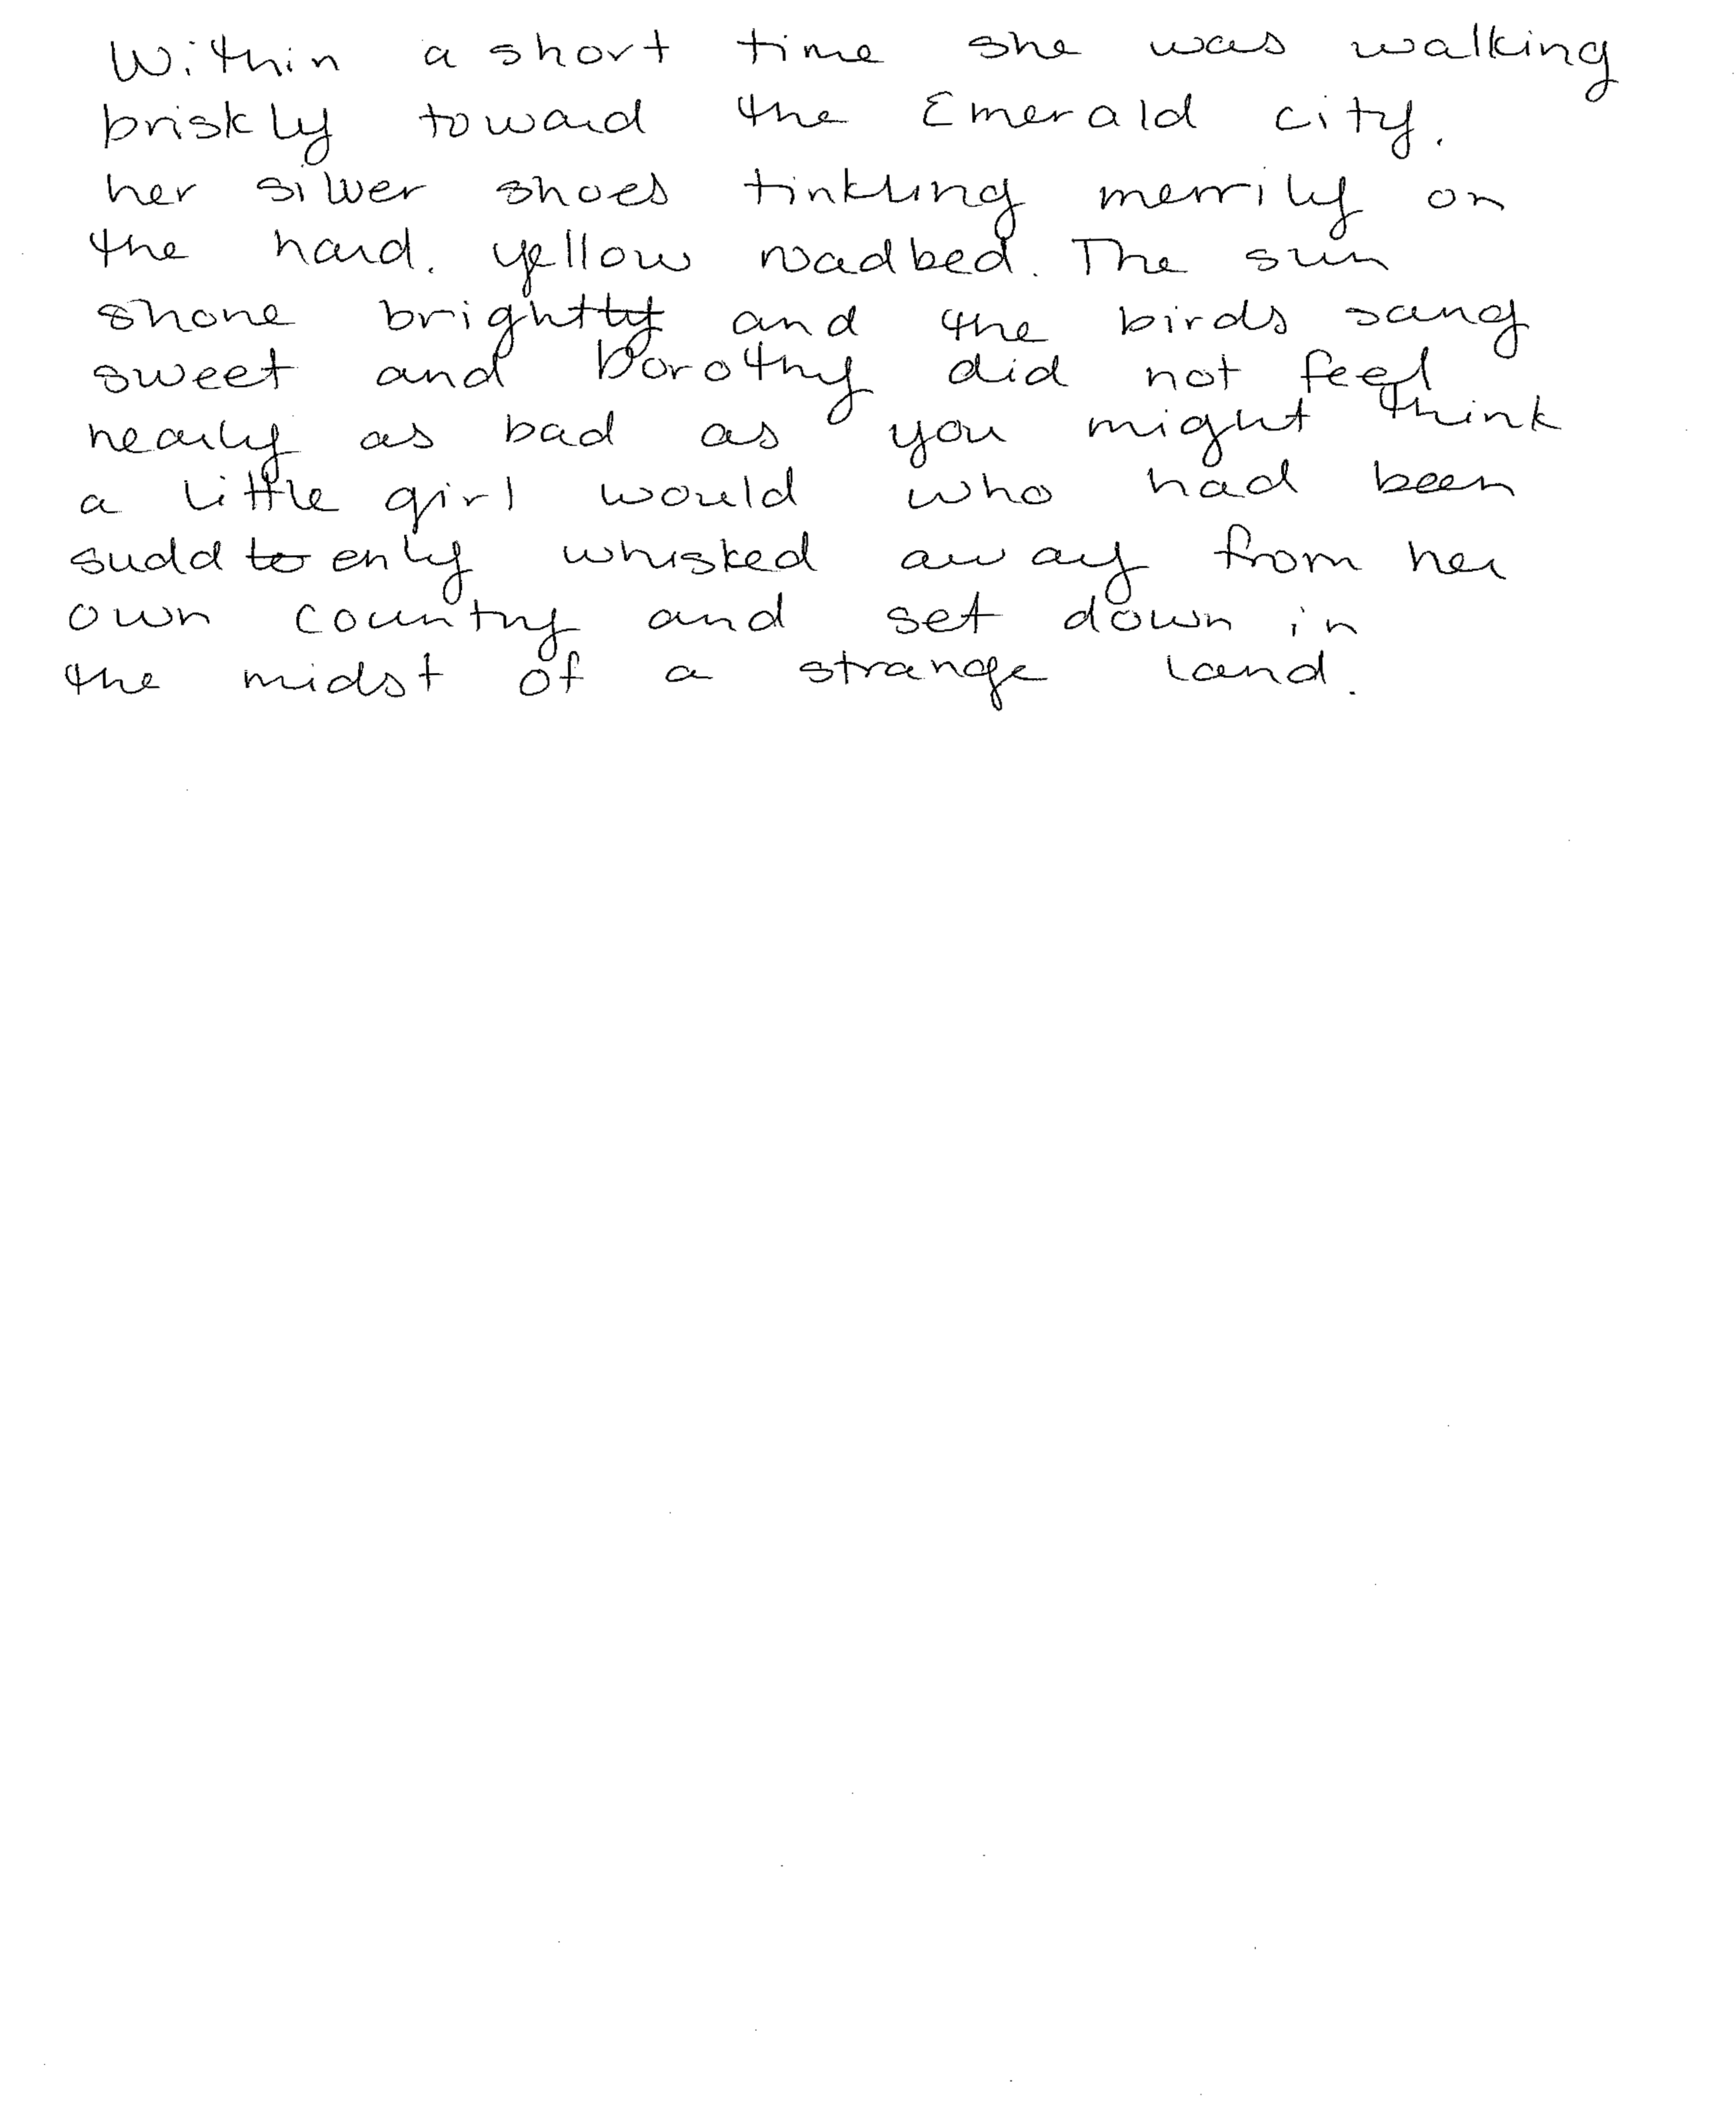 Within a short time she was walking
briskly toward the Emerald city.
her silver shoes tinkling merrily on
the hard. yellow roadbed. The sun
shone bright and the birds sang
sweet and Dorothy did not feel
nearly as bad as you might think
a little girl would who had been
suddenly whisked away from her
own country and set down in
the midst of a strange land.